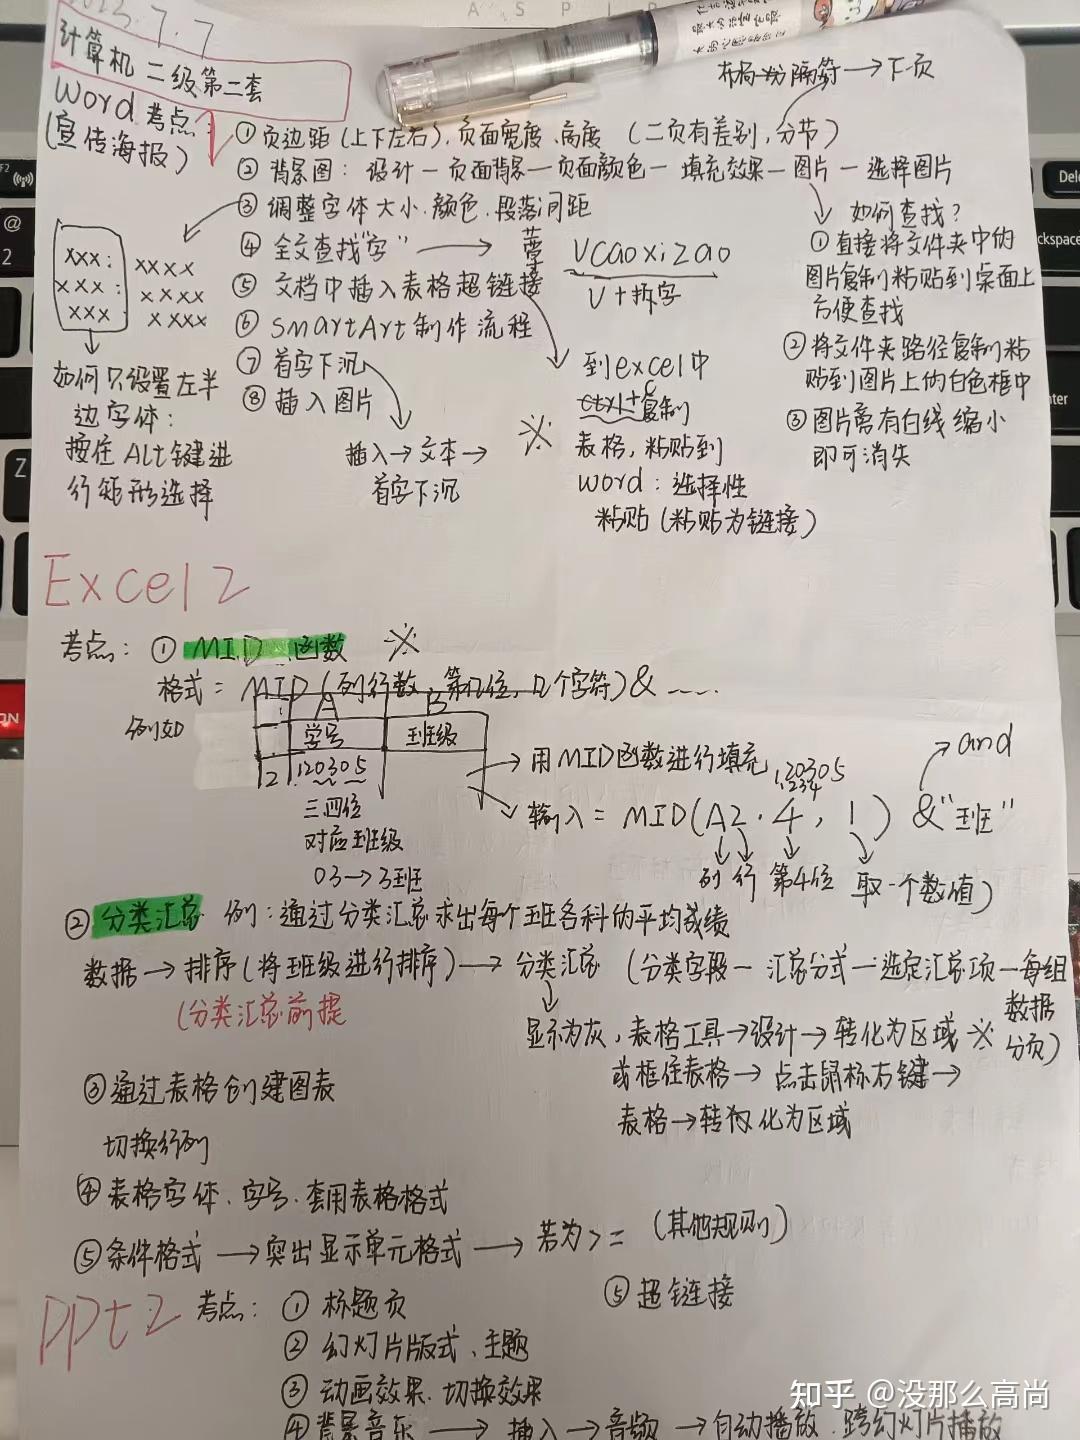 2023.7.7
计算机二级第二套
Word考点:
(宣传海报)
布局-分隔符→下页
①页边距(上下左右),页面宽度、高度 (二页有差别,分节)
②背景图:设计—页面背景—页面颜色—填充效果—图片—选择图片
③调整字体大小.颜色.段落间距
④全文查找"字"
⑤文档中插入表格超链接
⑥SmartArt制作流程
⑦首字下沉
⑧插入图片
插入→文本→
首字下沉
xxx: xxxx
xxx: xxxx
xxx xxxx
如何只设置左半
边字体:
按住Alt键进
行矩形选择
Vcaoxizao
V+拆字
※
到excel中
ctrl+c复制
表格,粘贴到
word:选择性
粘贴(粘贴为链接)
如何查找?
①直接将文件夹中的
图片复制粘贴到桌面上
方便查找
②将文件夹路径复制粘
贴到图片上的白色框中
③图片旁有白线缩小
即可消失
Excel2
考点:①MID函数 ※
格式=MID(列行数,第几位,几个字符)&……
例如
A B
1 学号 班级
2 120305
三四位
对应班级
03→3班
→用MID函数进行填充
120305
1234
输入=MID(A2.4,1)&"班"
→and
列 行 第4位 取一个数值)
②分类汇总 例:通过分类汇总求出每个班各科的平均成绩
数据→排序(将班级进行排序)→分类汇总(分类字段—汇总分式—选定汇总项—每组
数据
分页)
(分类汇总前提
显示为灰,表格工具→设计→转化为区域※
或框住表格→点击鼠标右键→
表格→转化为区域
③通过表格创建图表
切换行列
④表格字体.字号.套用表格格式
⑤条件格式→突出显示单元格式→若为>=(其他规则)
ppt2 考点:①标题页
②幻灯片版式、主题
③动画效果.切换效果
④背景音乐→插入→音频→自动播放.跨幻灯片播放
⑤超链接
知乎 @没那么高尚